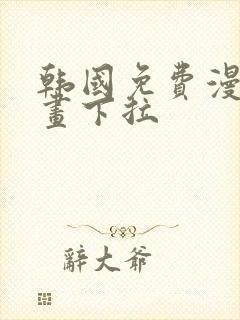 韩国免费漫
画下拉
辭大爷